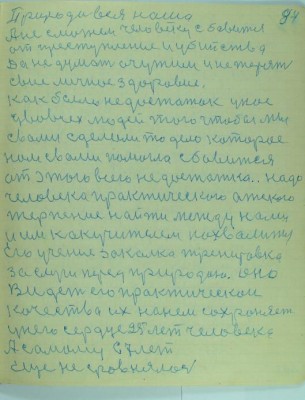 94
Природи вся наша
А не сможем человеку сбавится
от преступление и убийства
Да не думат о чужим и не терят
свае личное здоровие.
Как было недостаток у нас
у всех людей того чтобы мы
свами сделоли то дело которое
нам свами помогла сбавится
от этого всего недостатка.. надо
человека практического
терпение найти между нами
и им как учителем похвалится
Его учение закалка тренировка
заслуги перед природаю. оно
Видет его практическои
качества их нанем сохраняет
у него сердце 25 лет человека
А самому 67 лет
еще не сровнялося